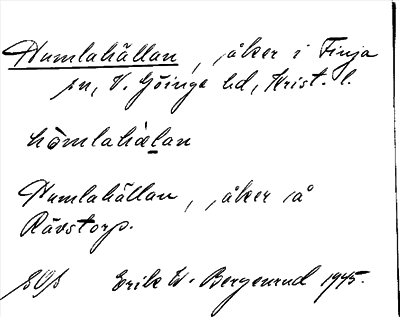 Humlahällan, åker i Finja
sn, V. Göinge hd, Krist. l.
hòmlahạlan
Humlahällan, åker på
Rävstorp.
Erik W. Bergenrud 1945.